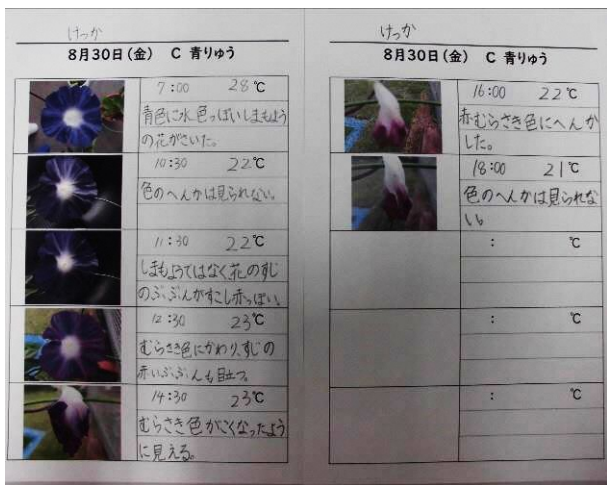 けっか
8月30日(金) C 青りゅう
7:00 28℃
青色に水色っぽいしまもよう
の花がさいた。
10:30 22℃
色のへんかは見られない。
11:30 22℃
しまもようではなく花のすじ
のぶぶんがすこし赤っぽい。
12:30 23℃
むらさき色にかわり、すじの
赤いぶぶんも目立つ。
14:30 23℃
むらさき色がこくなったよう
に見える。
けっか
8月30日(金) C 青りゅう
16:00 22℃
赤むらさき色にへんか
した。
18:00 21℃
色のへんかは見られな
い。
: ℃
: ℃
: ℃